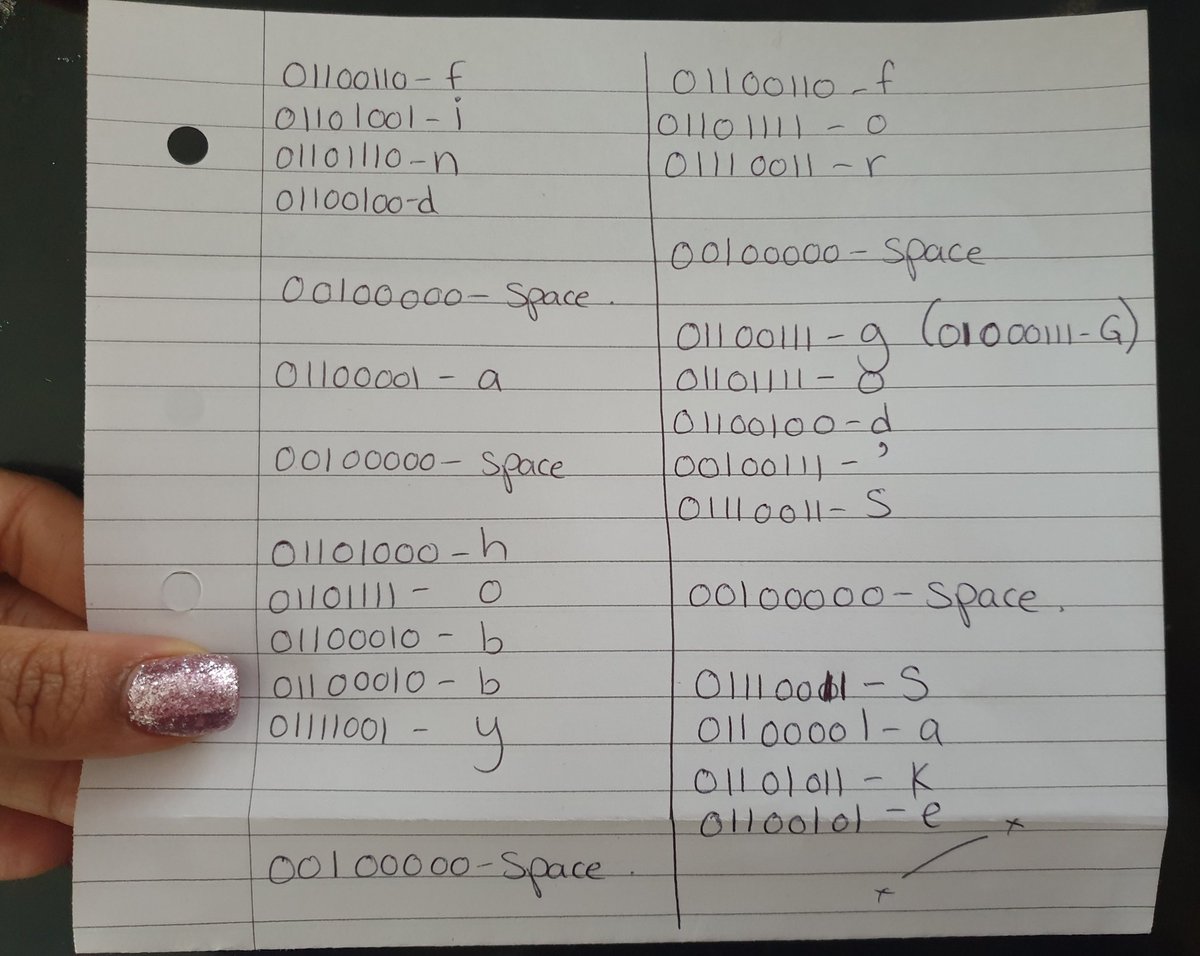 01100110 - f
01101001 - i
01101110 - n
01100100 - d
00100000 - Space.
01100001 - a
00100000 - Space
01101000 - h
01101111 - o
01100010 - b
01100010 - b
01111001 - y
00100000 - Space.
01100110 - f
01101111 - o
01110011 - r
00100000 - Space
01100111 - g (01000111 - G)
01101111 - o
01100100 - d
00100111 - '
01110011 - S
00100000 - Space.
01110011 - S
01100001 - a
01101011 - K
01100101 - e